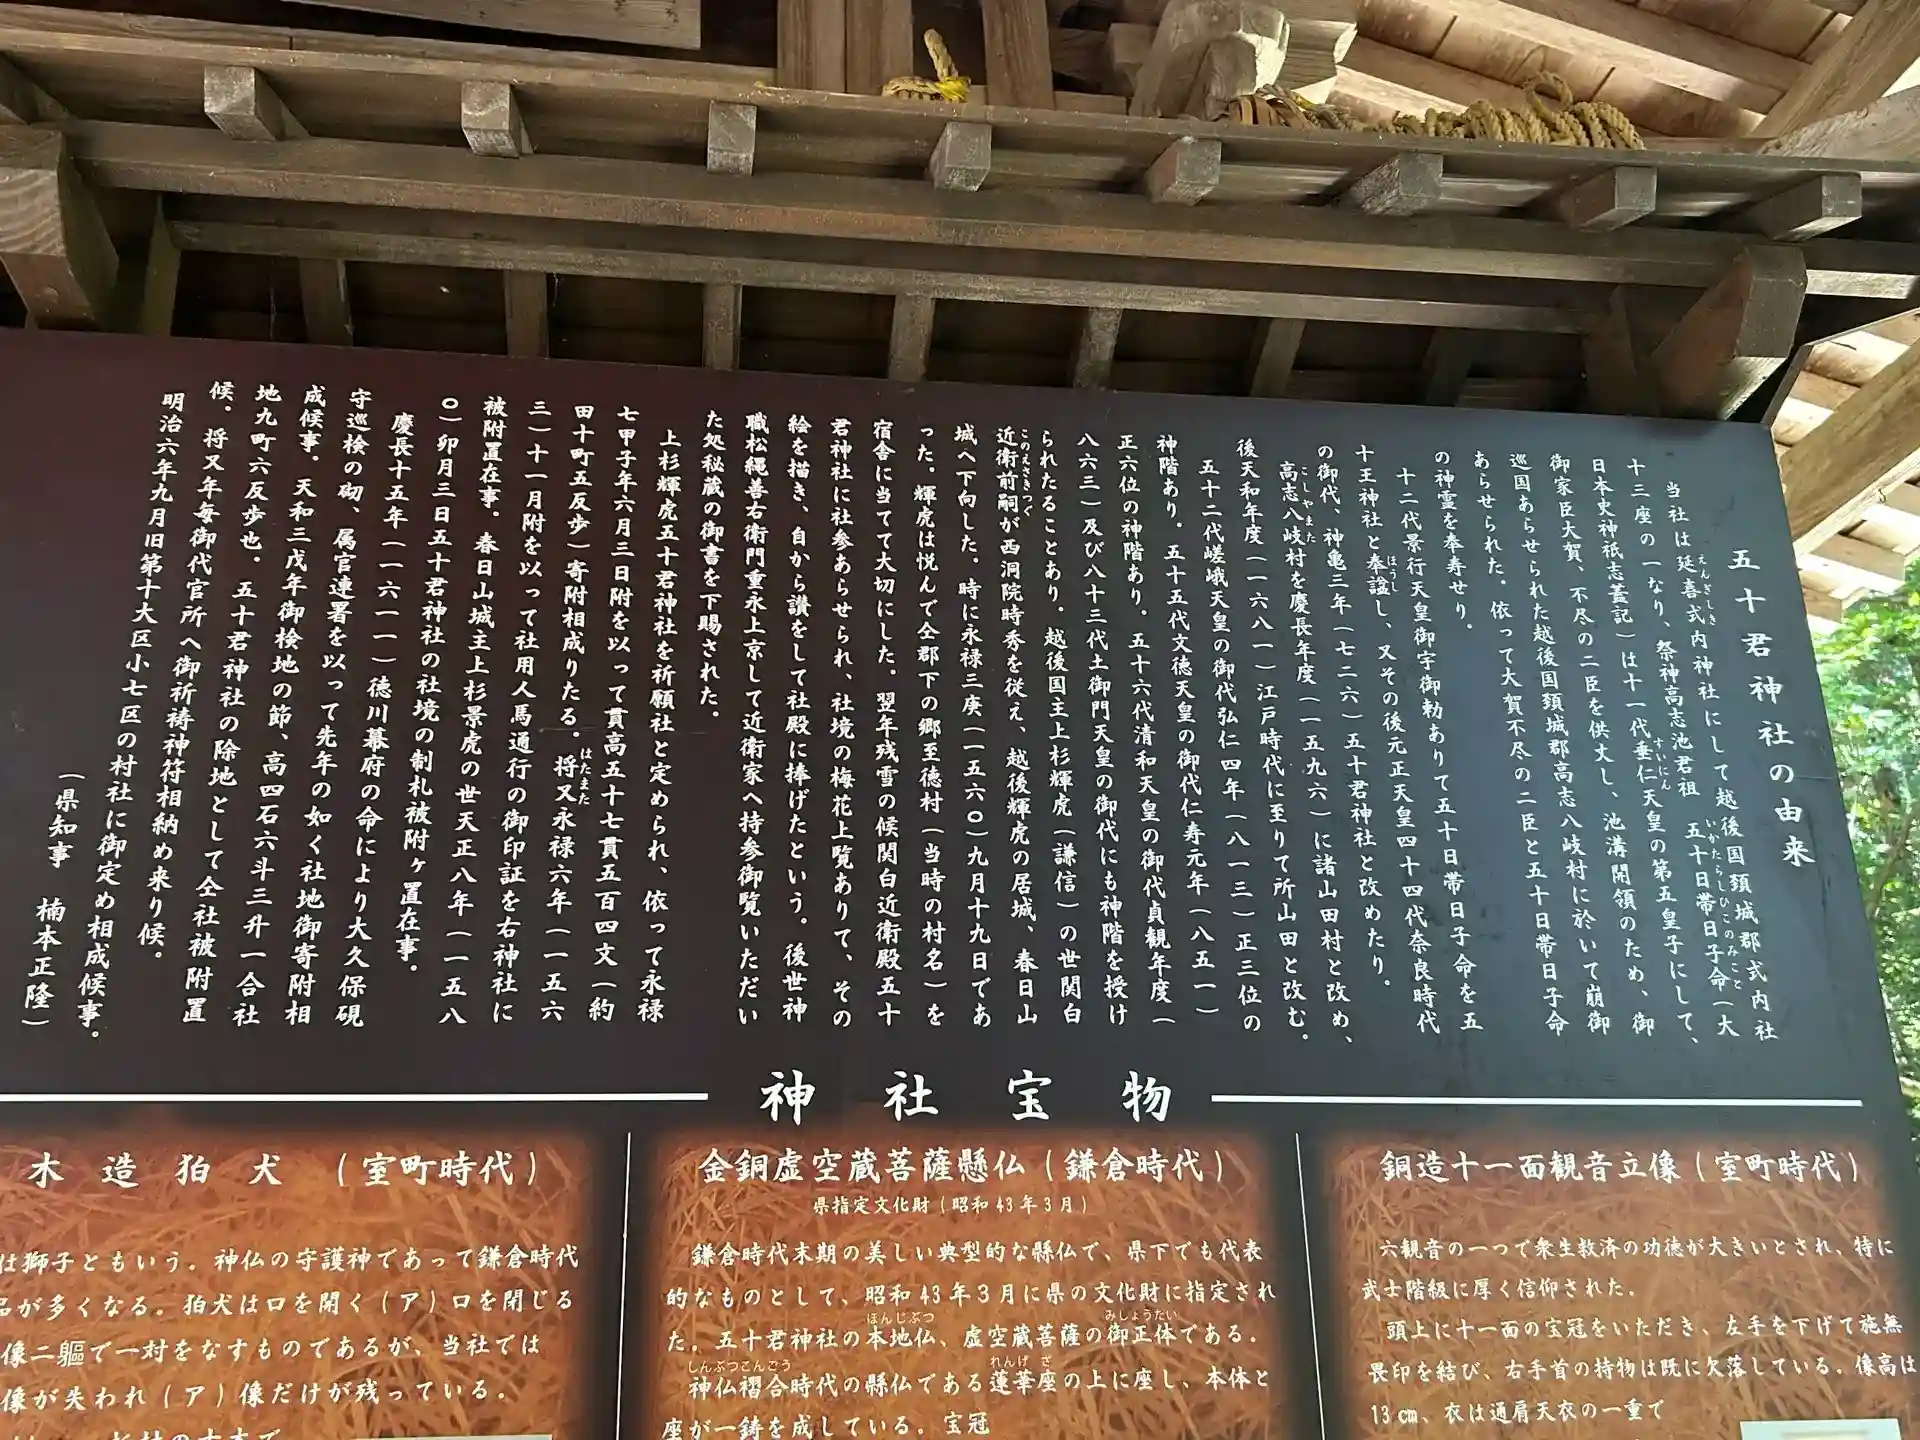 五十君神社の由来
当社は延喜式内神社にして越後国頚城郡式内社
えんぎしき
十三座の一なり、祭神高志池君祖 五十日帯日子命(大
いかたらしひこのみこと
日本史神祇志蓋記)は十一代垂仁天皇の第五皇子にして、
すいにん
御家臣大賀、不尽の二臣を供丈し、池溝開領のため、御
巡国あらせられた越後国頚城郡高志八岐村に於いて崩御
あらせられた。依って大賀不尽の二臣と五十日帯日子命
の神霊を奉寿せり。
十二代景行天皇御宇御勅ありて五十日帯日子命を五
十王神社と奉諡し、又その後元正天皇四十四代奈良時代
ほうし
の御代、神亀三年(七二六)五十君神社と改めたり。
高志八岐村を慶長年度(一五九六)に諸山田村と改め、
こしやまた
後天和年度(一六八一)江戸時代に至りて所山田と改む。
五十二代嵯峨天皇の御代弘仁四年(八一三)正三位の
神階あり。五十五代文徳天皇の御代仁寿元年(八五一)
正六位の神階あり。五十六代清和天皇の御代貞観年度(
八六三)及び八十三代土御門天皇の御代にも神階を授け
られたることあり。越後国主上杉輝虎(謙信)の世関白
近衛前嗣が西洞院時秀を従え、越後輝虎の居城、春日山
このえさきつぐ
城へ下向した。時に永禄三庚(一五六〇)九月十九日であ
った。輝虎は悦んで全郡下の郷至徳村(当時の村名)を
宿舎に当てて大切にした。翌年残雪の候関白近衛殿五十
君神社に社参あらせられ、社境の梅花上覧ありて、その
絵を描き、自から讃をして社殿に捧げたという。後世神
職松縄善右衛門重永上京して近衛家へ持参御覧いただい
た処秘蔵の御書を下賜された。
上杉輝虎五十君神社を祈願社と定められ、依って永禄
七甲子年六月三日附を以って貫高五十七貫五百四文(約
田十町五反歩)寄附相成りたる。将又永禄六年(一五六
はたまた
三)十一月附を以って社用人馬通行の御印証を右神社に
被附置在事。春日山城主上杉景虎の世天正八年(一五八
〇)卯月三日五十君神社の社境の制札被附ヶ置在事。
慶長十五年(一六一一)徳川幕府の命により大久保硯
守巡検の砌、属官連署を以って先年の如く社地御寄附相
成候事。天和三戌年御検地の節、高四石六斗三升一合社
地九町六反歩也。五十君神社の除地として全社被附置
候。将又年毎御代官所へ御祈祷神符相納め来り候。
明治六年九月旧第十大区小七区の村社に御定め相成候事。
(県知事 楠本正隆)
神社宝物
木造狛犬(室町時代)
は獅子ともいう。神仏の守護神であって鎌倉時代
品が多くなる。狛犬は口を開く(ア)口を閉じる
像二軀で一対をなすものであるが、当社では
像が失われ(ア)像だけが残っている。
金銅虚空蔵菩薩懸仏(鎌倉時代)
県指定文化財(昭和43年3月)
鎌倉時代末期の美しい典型的な縣仏で、県下でも代表
的なものとして、昭和43年3月に県の文化財に指定され
た。五十君神社の本地仏、虚空蔵菩薩の御正体である。
ほんじぶつ みしょうたい
神仏褶合時代の縣仏である蓮華座の上に座し、本体と
しんぶつこんごう れんげざ
座が一鋳を成している。宝冠
銅造十一面観音立像(室町時代)
六観音の一つで衆生救済の功徳が大きいとされ、特に
武士階級に厚く信仰された。
頭上に十一面の宝冠をいただき、左手を下げて施無
畏印を結び、右手首の持物は既に欠落している。像高は
13㎝、衣は通肩天衣の一重で